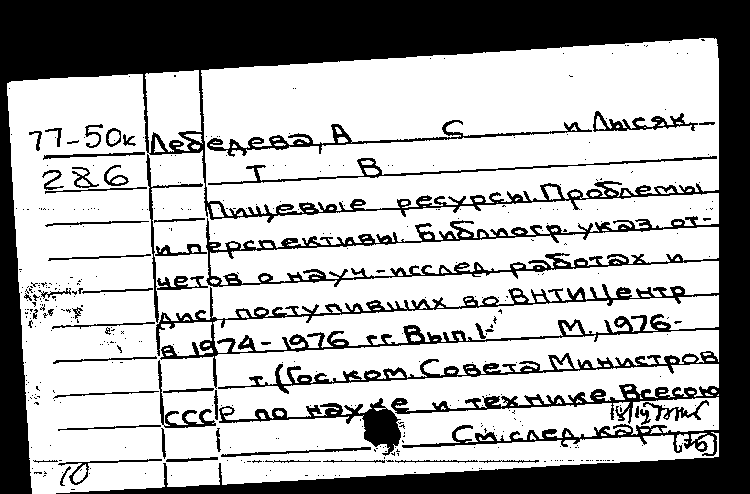 77-50к Лебедева, А С и Лысяк,
286 Т В
Пищевые ресурсы. Проблемы
и перспективы. Библиогр. указ. от-
четов о науч.-исслед. работах и
дис., поступивших во ВНТИЦентр
в 1974-1976 гг. Вып. 1- М., 1976-
т. (Гос. ком. Совета Министров
СССР по науке и технике. Всесою
См. след. карт.
10 [76]